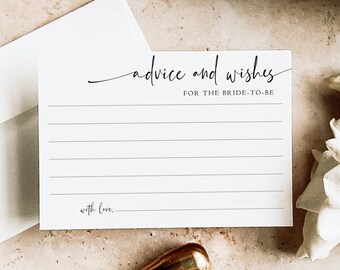 advice and wishes
FOR THE BRIDE-TO-BE
with love,